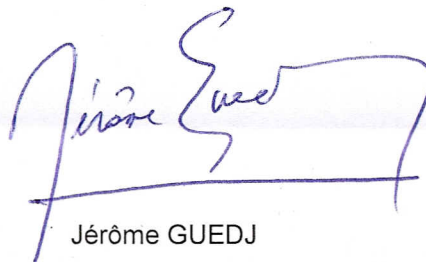 Jérôme Guedj
Jérôme GUEDJ